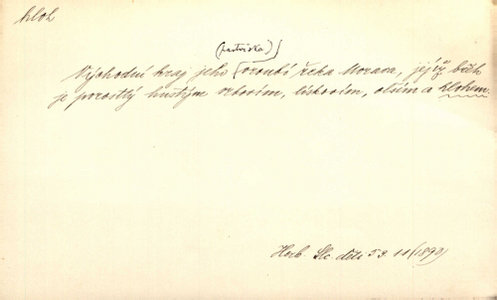 hloh
(pastviska)
Východní kraj jeho vroubí řeka Morava, jejíž běh
je porostlý hustým vrbovím, lískovím, olším a hlohem.
Herb. Slc. děl. 53. 11 (1899)